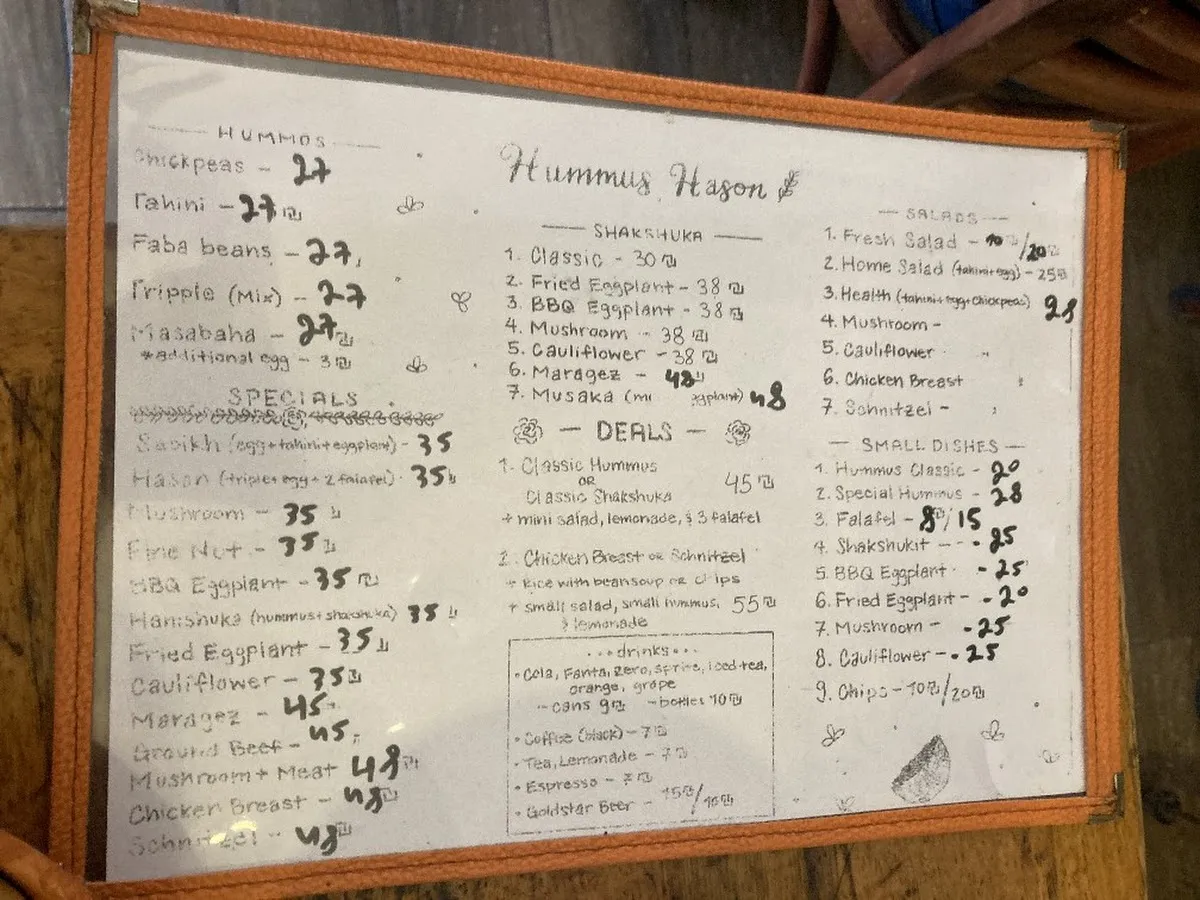 HUMMOS
Chickpeas - 27
Tahini - 27 ₪
Faba beans - 27
Tripple (Mix) - 27
Masabaha - 27 ₪
*additional egg - 3 ₪
SPECIALS
Sabikh (egg+tahini+eggplant) - 35
Hason (triple+egg+2 falafel) - 35
Mushroom - 35
Pine Nut - 35
BBQ Eggplant - 35 ₪
Hamshuka (hummus+shakshuka) 35
Fried Eggplant - 35
Cauliflower - 35 ₪
Maragez - 45
Ground Beef - 45
Mushroom + Meat 48 ₪
Chicken Breast - 48 ₪
Schnitzel - 48 ₪
Hummus Hason
SHAKSHUKA
1. Classic - 30 ₪
2. Fried Eggplant - 38 ₪
3. BBQ Eggplant - 38 ₪
4. Mushroom - 38 ₪
5. Cauliflower - 38 ₪
6. Maragez - 48
7. Musaka 48
- DEALS -
1. Classic Hummus
OR
Classic Shakshuka
45 ₪
+ mini salad, lemonade, & 3 falafel
2. Chicken Breast OR Schnitzel
+ Rice with bean soup OR Chips
+ small salad, small hummus, 55 ₪
& lemonade
...drinks...
• Cola, Fanta, Zero, Sprite, iced tea,
orange, grape
- cans 9 ₪ - bottles 10 ₪
• Coffee (black) - 7 ₪
• Tea, Lemonade - 7 ₪
• Espresso - 7 ₪
• Goldstar Beer - 15 ₪ /
- SALADS -
1. Fresh Salad - 10 ₪/20 ₪
2. Home Salad (tahini+egg) - 25 ₪
3. Health (tahini+egg+chickpeas) 28
4. Mushroom -
5. Cauliflower
6. Chicken Breast
7. Schnitzel -
- SMALL DISHES -
1. Hummus Classic - 20
2. Special Hummus - 28
3. Falafel - 8 ₪/15
4. Shakshukit - - - 25
5. BBQ Eggplant - 25
6. Fried Eggplant - 20
7. Mushroom - 25
8. Cauliflower - 25
9. Chips - 10 ₪/20 ₪